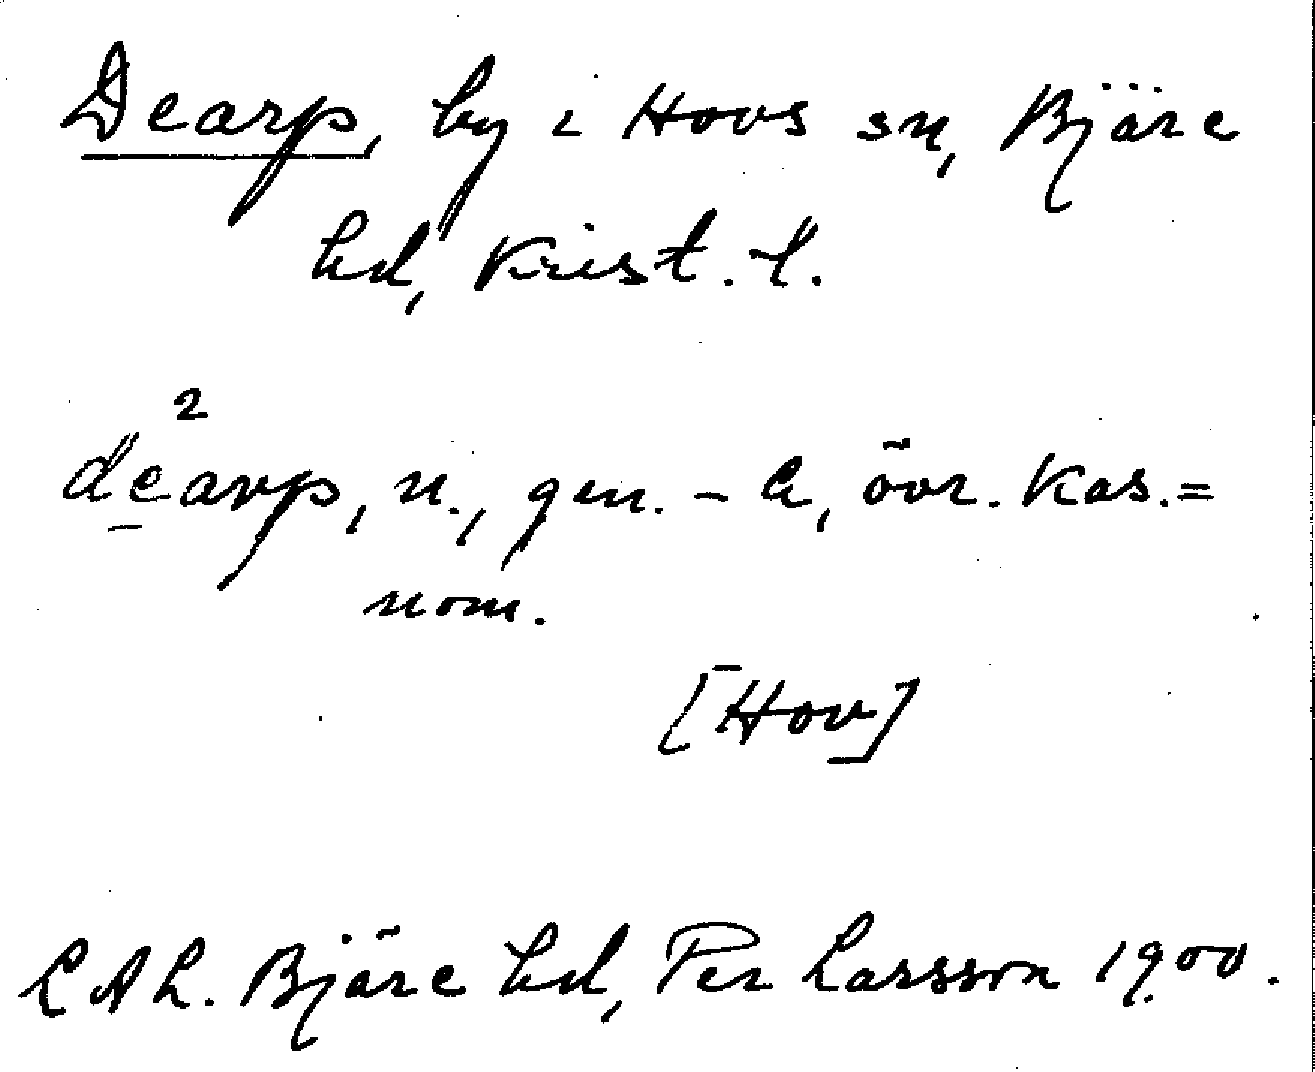 Dearp, by i Hovs sn, Bjäre
hd, Krist. l.
de̱²arp, n., gen. - a, övr. kas. =
nom.
[Hov]
LAL. Bjäre hd, Per Larsson 1900.